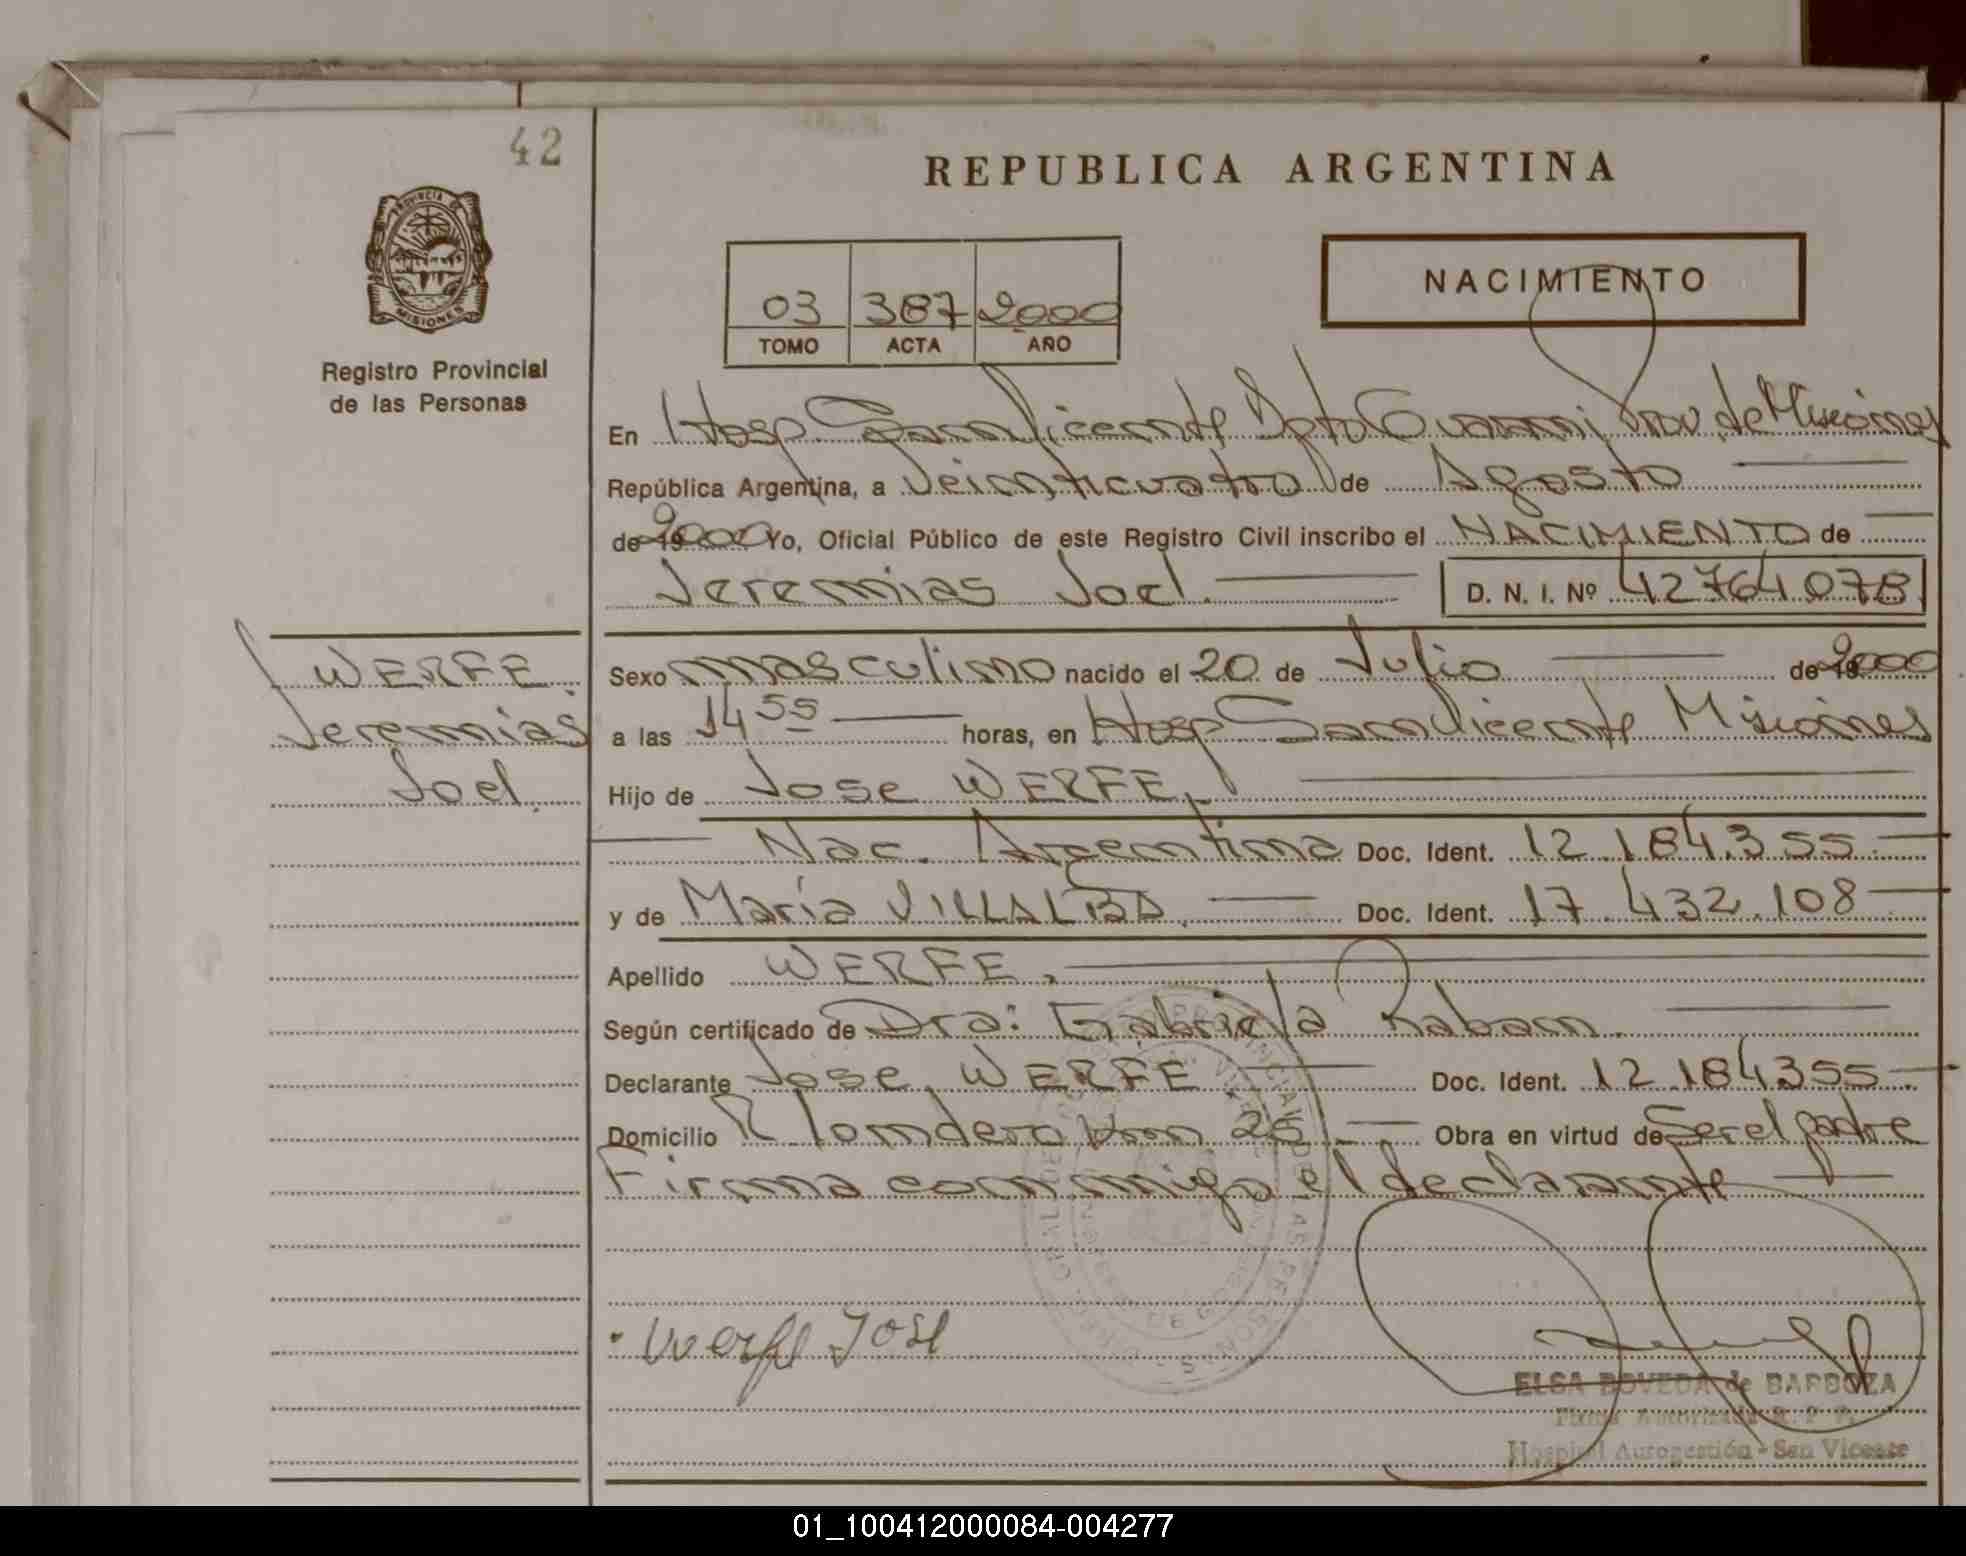 42
REPUBLICA ARGENTINA
PROVINCIA DE
MISIONES
Registro Provincial
de las Personas
03 387 2000
TOMO ACTA AÑO
NACIMIENTO
En Hosp San Vicente Dpto Guarani Prov. de Misiones
República Argentina, a Veinticuatro de Agosto
de 2000 Yo, Oficial Público de este Registro Civil inscribo el NACIMIENTO de
Jeremias Joel. D. N. I. Nº 42764078
WERFE
Jeremias
Joel.
Sexo masculino nacido el 20 de Julio de 2000
a las 14 55 horas, en Hosp San Vicente Misiones
Hijo de Jose WERFE,
Nac. Argentina Doc. Ident. 12.184.355
y de María VILLALBA, Doc. Ident. 17.432.108
Apellido WERFE,
Según certificado de Dra: Gabriela Raban.
Declarante Jose WERFE Doc. Ident. 12.184355
Domicilio Londero Km 25 Obra en virtud de Ser el padre
Firma conmigo el declarante
Werfe Jose
ELSA BOVEDA de BARBOZA
Firma Autorizada R. P. P.
Hospital Autogestión - San Vicente
01_100412000084-004277